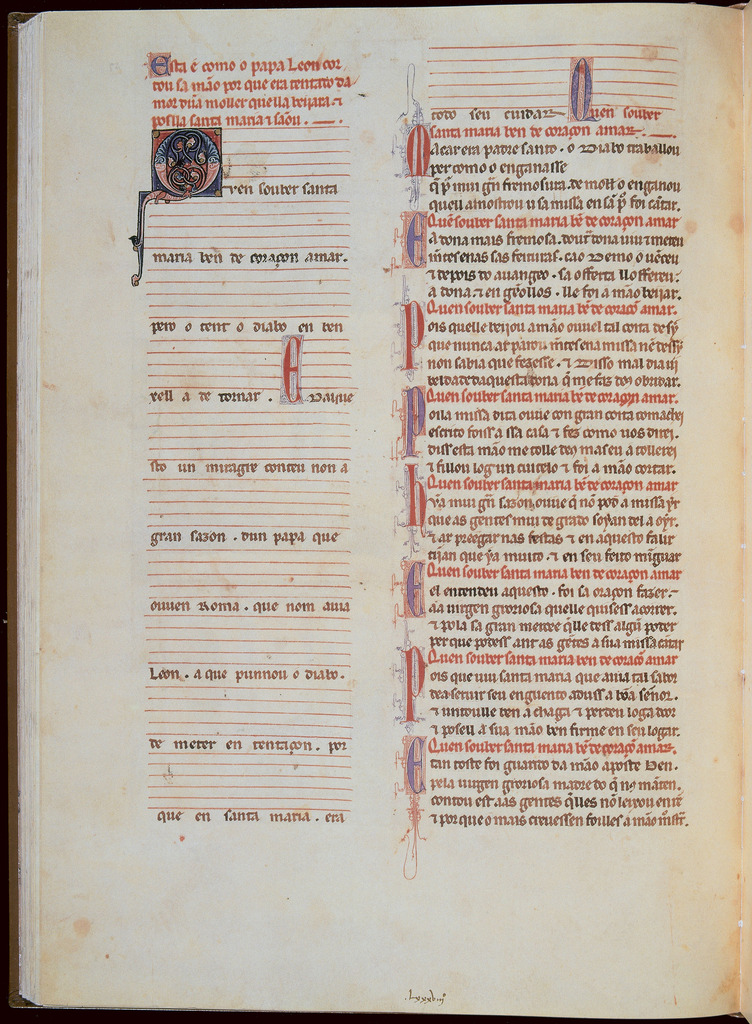 Esta é como o papa Leon cor
tou sa mão por que era tentado da
mor dũa moller que lla beijara ⁊
pois lla santa maria ⁊ saõu.
Quen souber santa
maria ben de coraçon amar.
pero o tent o diabo en ben
xell a de tornar. E daque
sto un miragre conteu non a
gran sazon. dun papa que
ouuen Roma. que nom auia
Leon. a que punnou o diabo.
de meter en tentaçon. por
que en santa maria. era
todo seu cuidar Quen souber
santa maria ben de coraçon amar.
Macar era padre santo. o diabo traballou
per como o enganasse
q̃ p̃ mui gñ fremosura de moll̃ o enganou
quell amostrou u sa missa en sã p̃ foi cãtar.
Quẽ souber santa maria bẽ de coraçon amar
E a dona mais fremosa. doutr dona uiu ⁊ meteu
mẽtes en as sas feituras. cao demo o uẽceu
⁊ depois do auangeo. sa offerta ll offereu.
a dona. ⁊ en geõllos. lle foi a mão beijar.
Quen souber santa maria bẽ de coraçõ amar.
Pois quelle beijou a mão ouuel tal coita de sy
que nunca ar parou mẽtes ena missa nẽ dessy
non sabia que fezesse. ⁊ disso mal dia ui
beldade daquesta dona q̃ me faz đs obridar.
Quen souber santa maria bẽ de coraçon amar.
Poila missa dita ouue con gran coita com achei
escrito foiss a ssa casa ⁊ fez como uos direi.
diss esta mão me tolle đs mas eu a tollerei
⁊ fillou log un cuitelo ⁊ foi a mão cortar.
Quen souber santa maria bẽ de coraçon amar
hỹa mui gñ sazon ouue q̃ nõ pod a missa yr
que as gentes mui de grado soyan del a oyr.
⁊ ar preegar nas festas ⁊ en aquesto falir
tijan que ýa muito. ⁊ en seu feito mĩguar
Quen souber santa maria bẽ de coraçon amar
E el entendeu aquesto. foi sa oraçon fazer
áá uirgen groriosa quelle quisess acorrer.
⁊ pola sa gran mercee q̃lle dess algũ poder
per que podess ant as gẽtes a sua missa cãtar
Quen souber santa maria bẽ de coraçõ amar
Pois que uiu santa maria que auia tal sabor
dea seruir seu enguento aduss a bõa señor.
⁊ untoulle ben a chaga ⁊ perdeu loga door
⁊ posell a sua mão ben firme en seu logar.
Quen souber santa maria bẽ de coraço amar.
E tan toste foi guarido da mão aposte ben.
pela uirgen groriosa madre do q̃ nos mãten.
contou est aas gentes q̃lles nõ leixou en rẽ
⁊ por que o mais creuessen foilles a mão mostr.
.Lxxxiiij